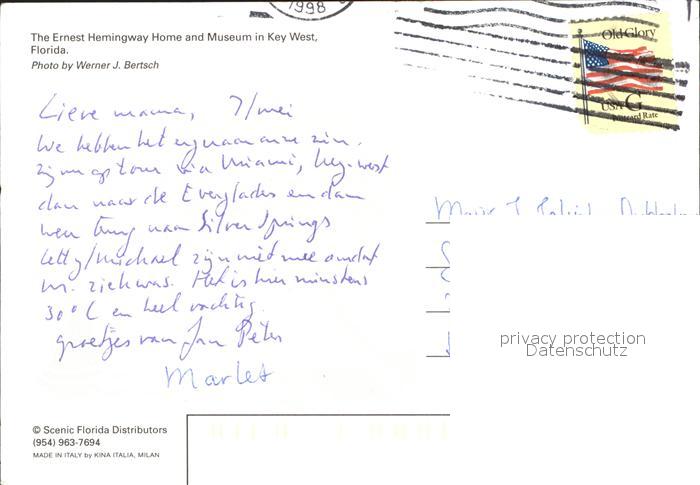 1998
The Ernest Hemingway Home and Museum in Key West,
Florida.
Photo by Werner J. Bertsch
Old Glory
USA G
Postcard Rate
Lieve mama, 7/mei
We hebben het erg naar onze zin.
zijn op tour via Miami, key-west
dan naar de Everglades en dan
weer terug naar Silver Springs
Letty/Michael zijn niet mee omdat
M. ziek was. Het is hier minstens
30° C en heel vochtig.
groetjes van Jan Peter
Marlet
privacy protection
Datenschutz
© Scenic Florida Distributors
(954) 963-7694
MADE IN ITALY by KINA ITALIA, MILAN